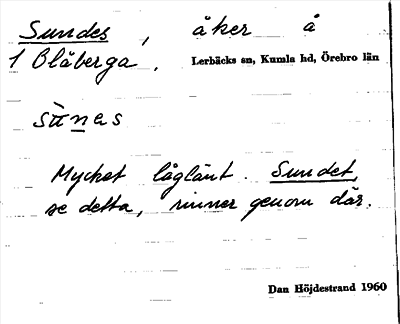 Sundes, åker å
1 Blåberga. Lerbäcks sn, Kumla hd, Örebro län
sùnes
Mycket låglänt. Sundet,
se detta, rinner genom där.
Dan Höjdestrand 1960